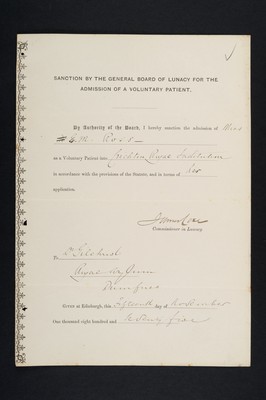 SANCTION BY THE GENERAL BOARD OF LUNACY FOR THE
ADMISSION OF A VOLUNTARY PATIENT.
By Authority of the Board, I hereby sanction the admission of Miss
M. Ross
as a Voluntary Patient into Crichton Royal Institution
in accordance with the provisions of the Statute, and in terms of her
application.
Commissioner in Lunacy
To Dr Gilchrist
Royal Asylum
Dumfries
Given at Edinburgh, this Eleventh day of November
One thousand eight hundred and Seventy five